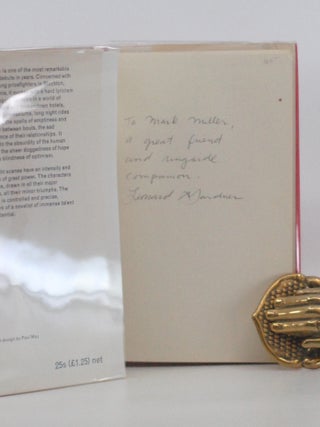 is one of the most remarkable
debuts in years. Concerned with
prizefighters in Stockton,
a hard lyricism
with a world of
hotels,
long night rides
the spells of emptiness and
between bouts, the sad
of their relationships. It
to the absurdity of the human
the sheer doggedness of hope
blindness of optimism.
scenes have an intensity and
of great power. The characters
drawn in all their major
all their minor triumphs. The
is controlled and precise.
of a novelist of immense talent
design by Paul May
25s (£1.25) net
To Mark Miller,
a great friend
and ringside
companion.
Leonard Gardner